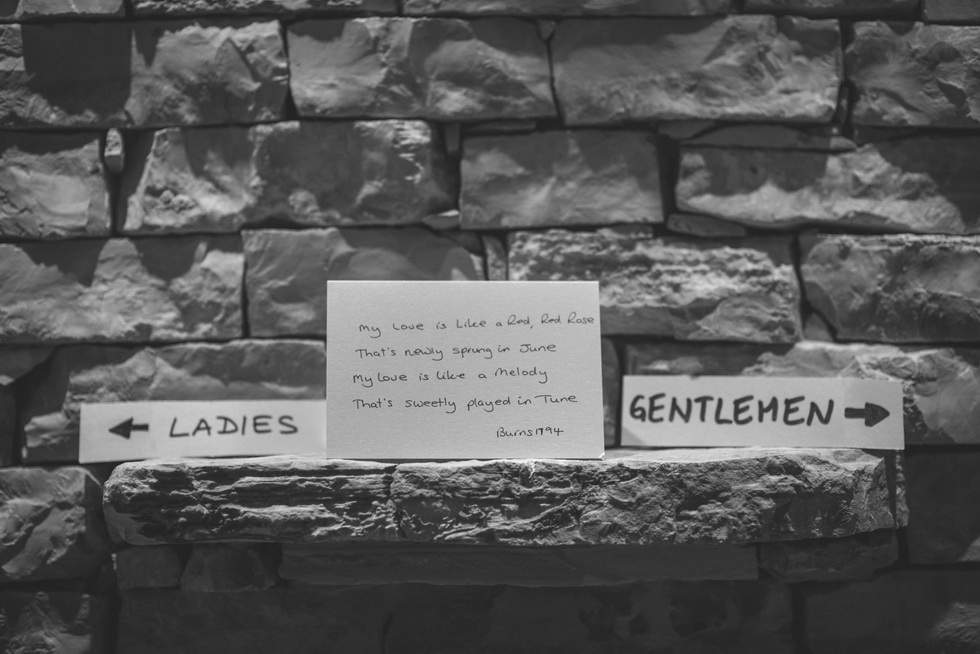 My Love is Like a Red, Red Rose
That's newly sprung in June
My Love is like a Melody
That's sweetly played in Tune
Burns 1794
← LADIES
GENTLEMEN →